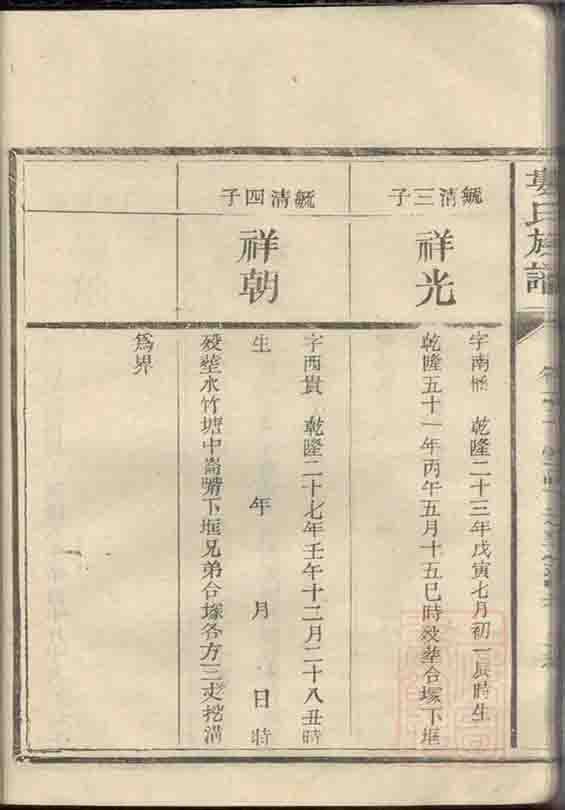 氏族譜
毓清三子
祥光
字南極 乾隆二十三年戊寅七月初一辰時生
乾隆五十一年丙午五月十五巳時歿塟合塚下框
毓清四子
祥朝
字西貴 乾隆二十七年壬午十二月二十八丑時
生 年 月 日時
歿塟水竹塘中崙嘴下框兄弟合塚各方三丈挖溝
爲界